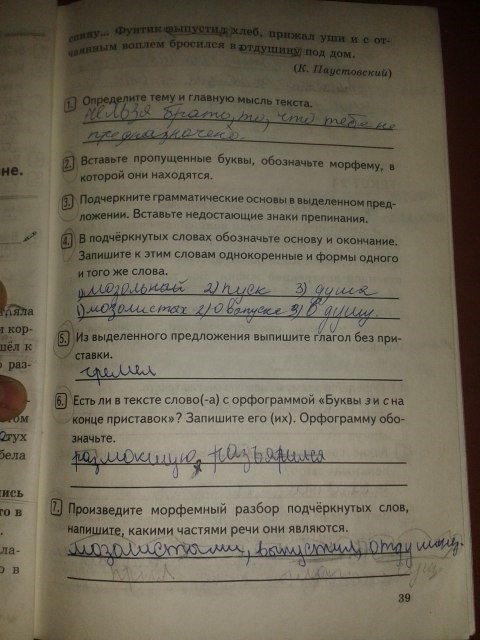 Фунтик выпустил хлеб, прижал уши и с от-
чаянным воплем бросился в отдушину под дом.
(К. Паустовский)
1. Определите тему и главную мысль текста.
нельзя брать то, что тебе не
предназначено.
2. Вставьте пропущенные буквы, обозначьте морфему, в
которой они находятся.
3. Подчеркните грамматические основы в выделенном пред-
ложении. Вставьте недостающие знаки препинания.
4. В подчёркнутых словах обозначьте основу и окончание.
Запишите к этим словам однокоренные и формы одного
и того же слова.
1) мозольный 2) пуск 3) душа
1) мозолистых 2) о выпуске 3) в душу.
5. Из выделенного предложения выпишите глагол без при-
ставки.
гремел
6. Есть ли в тексте слово(-а) с орфограммой «Буквы з и с на
конце приставок»? Запишите его (их). Орфограмму обо-
значьте.
размокшую, разъярился
7. Произведите морфемный разбор подчёркнутых слов,
напишите, какими частями речи они являются.
мозолистыми, выпустил,
39